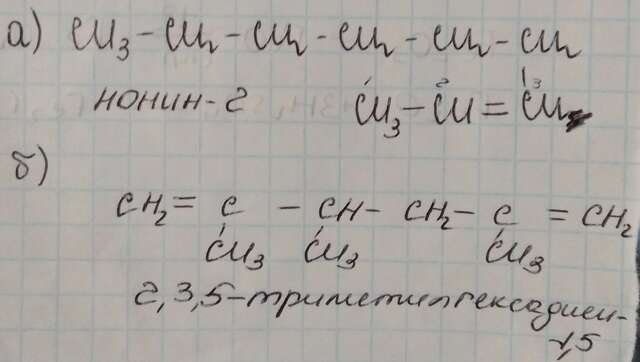 а) CH3 – CH2 – CH2 – CH2 – CH2 – CH2
нонин-2 CH3 – CH = CH
1 2 3
б)
CH2 = C – CH – CH2 – C = CH2
CH3 CH3 CH3
2,3,5-триметилгексадиен-
1,5